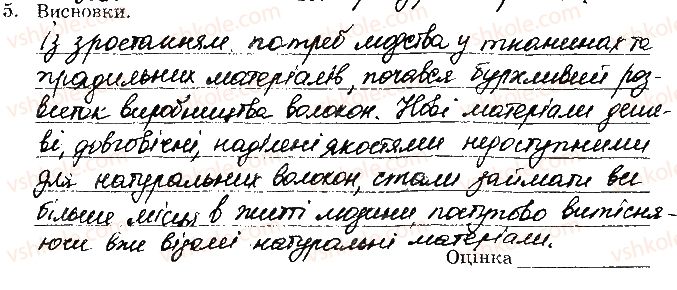 5. Висновки.
Із зростанням потреб людства у тканинах та
прядильних матеріалів, почався бурхливий роз-
виток виробництва волокон. Нові матеріали деше-
ві, довговічні, наділені якостями недоступними
для натуральних волокон, стали займати все
більше місця в житті людини поступово витісня-
ючи вже відомі натуральні матеріали.
Оцінка